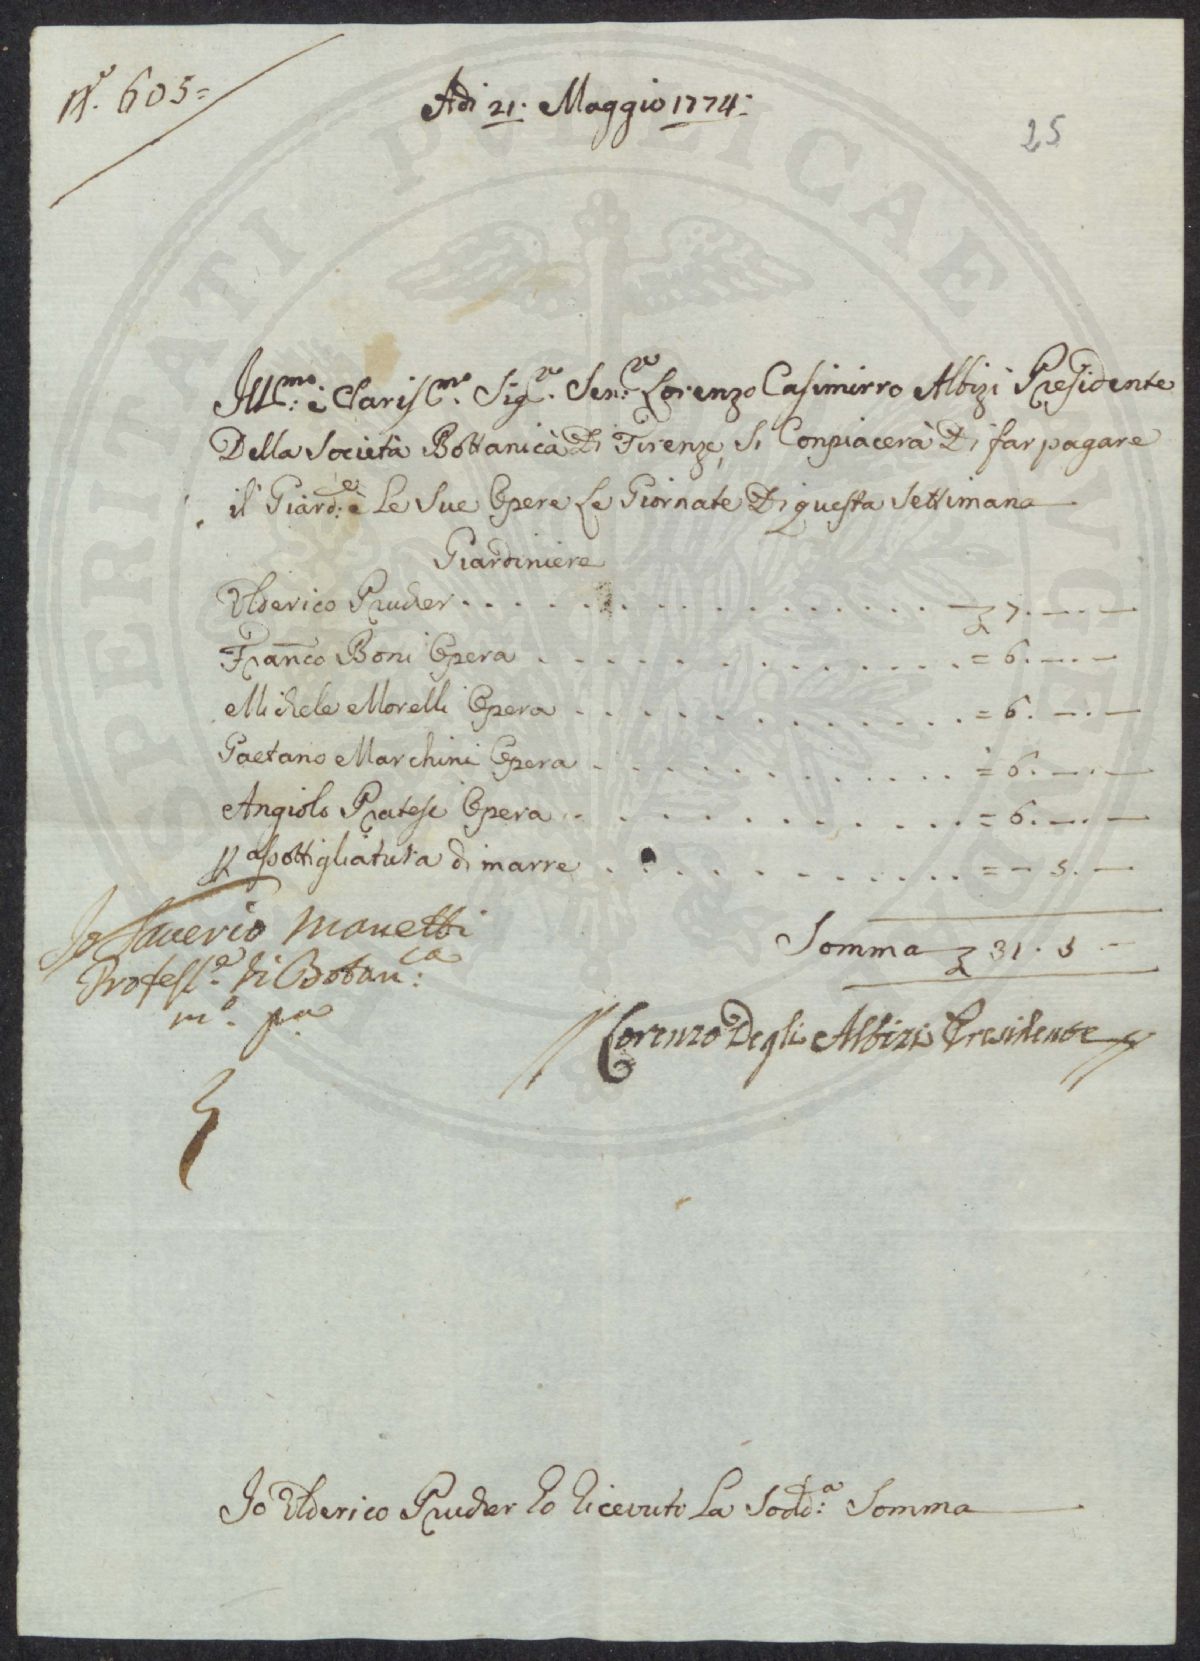 N.º 605=
Adi 21. Maggio 1774.
25
Ill.mo è Claris.mo Sig.re Sen.re Lorenzo Casimirro Albizi Presidente
Della Società Bottanicà Di Firenze, Si Conpiacerà Di far pagare
il Giard.e è Le Sue Opere Le Giornate Di questa Settimana
Giardiniere
Ulderico Prucher . . . . . . . . . . . . . . . £ 7. —. —
Franco Boni Opera . . . . . . . . . . . . . . = 6. —. —
Michele Morelli Opera . . . . . . . . . . . . = 6. —. —
Gaetano Marchini Opera . . . . . . . . . . . = 6. —. —
Angiolo Pratesi Opera . . . . . . . . . . . . = 6. —. —
Rasottigliatura di marre . . . . . . . . . . . = — 5. —
Somma £ 31. 5 —
Io Saverio Manetti
Profess.e di Botan.ca
m.o p.a
Lorenzo Degli Albizi Presidente
Io Ulderico Prucher ho ricevuto La Sodd.a Somma
SPERITATI PVBLICAE